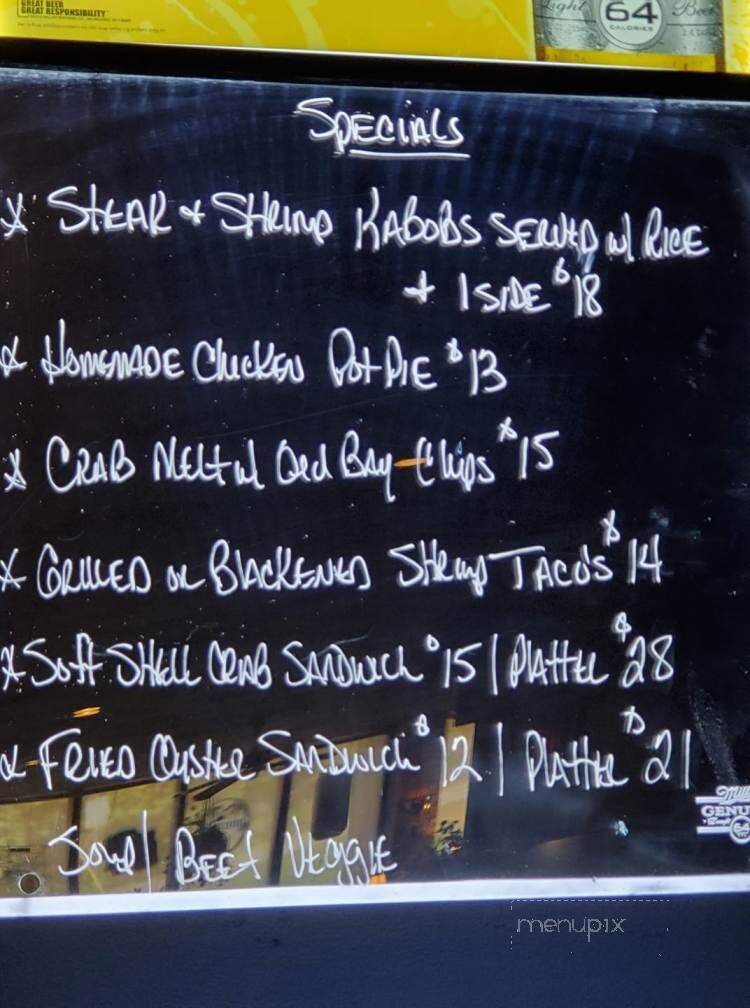 GREAT BEER
GREAT RESPONSIBILITY
Light 64 Beer
CALORIES
SPECIALS
STEAK + SHRIMP KABOBS SERVED W/ RICE
+ 1 SIDE $18
HOMEMADE CHICKEN POT PIE $13
CRAB MELT W/ OLD BAY CHIPS $15
GRILLED OR BLACKENED SHRIMP TACO'S $14
SOFT SHELL CRAB SANDWICH $15 | PLATTER $28
FRIED OYSTER SANDWICH $12 | PLATTER $21
SOUP | BEEF VEGGIE
GENU
menupix